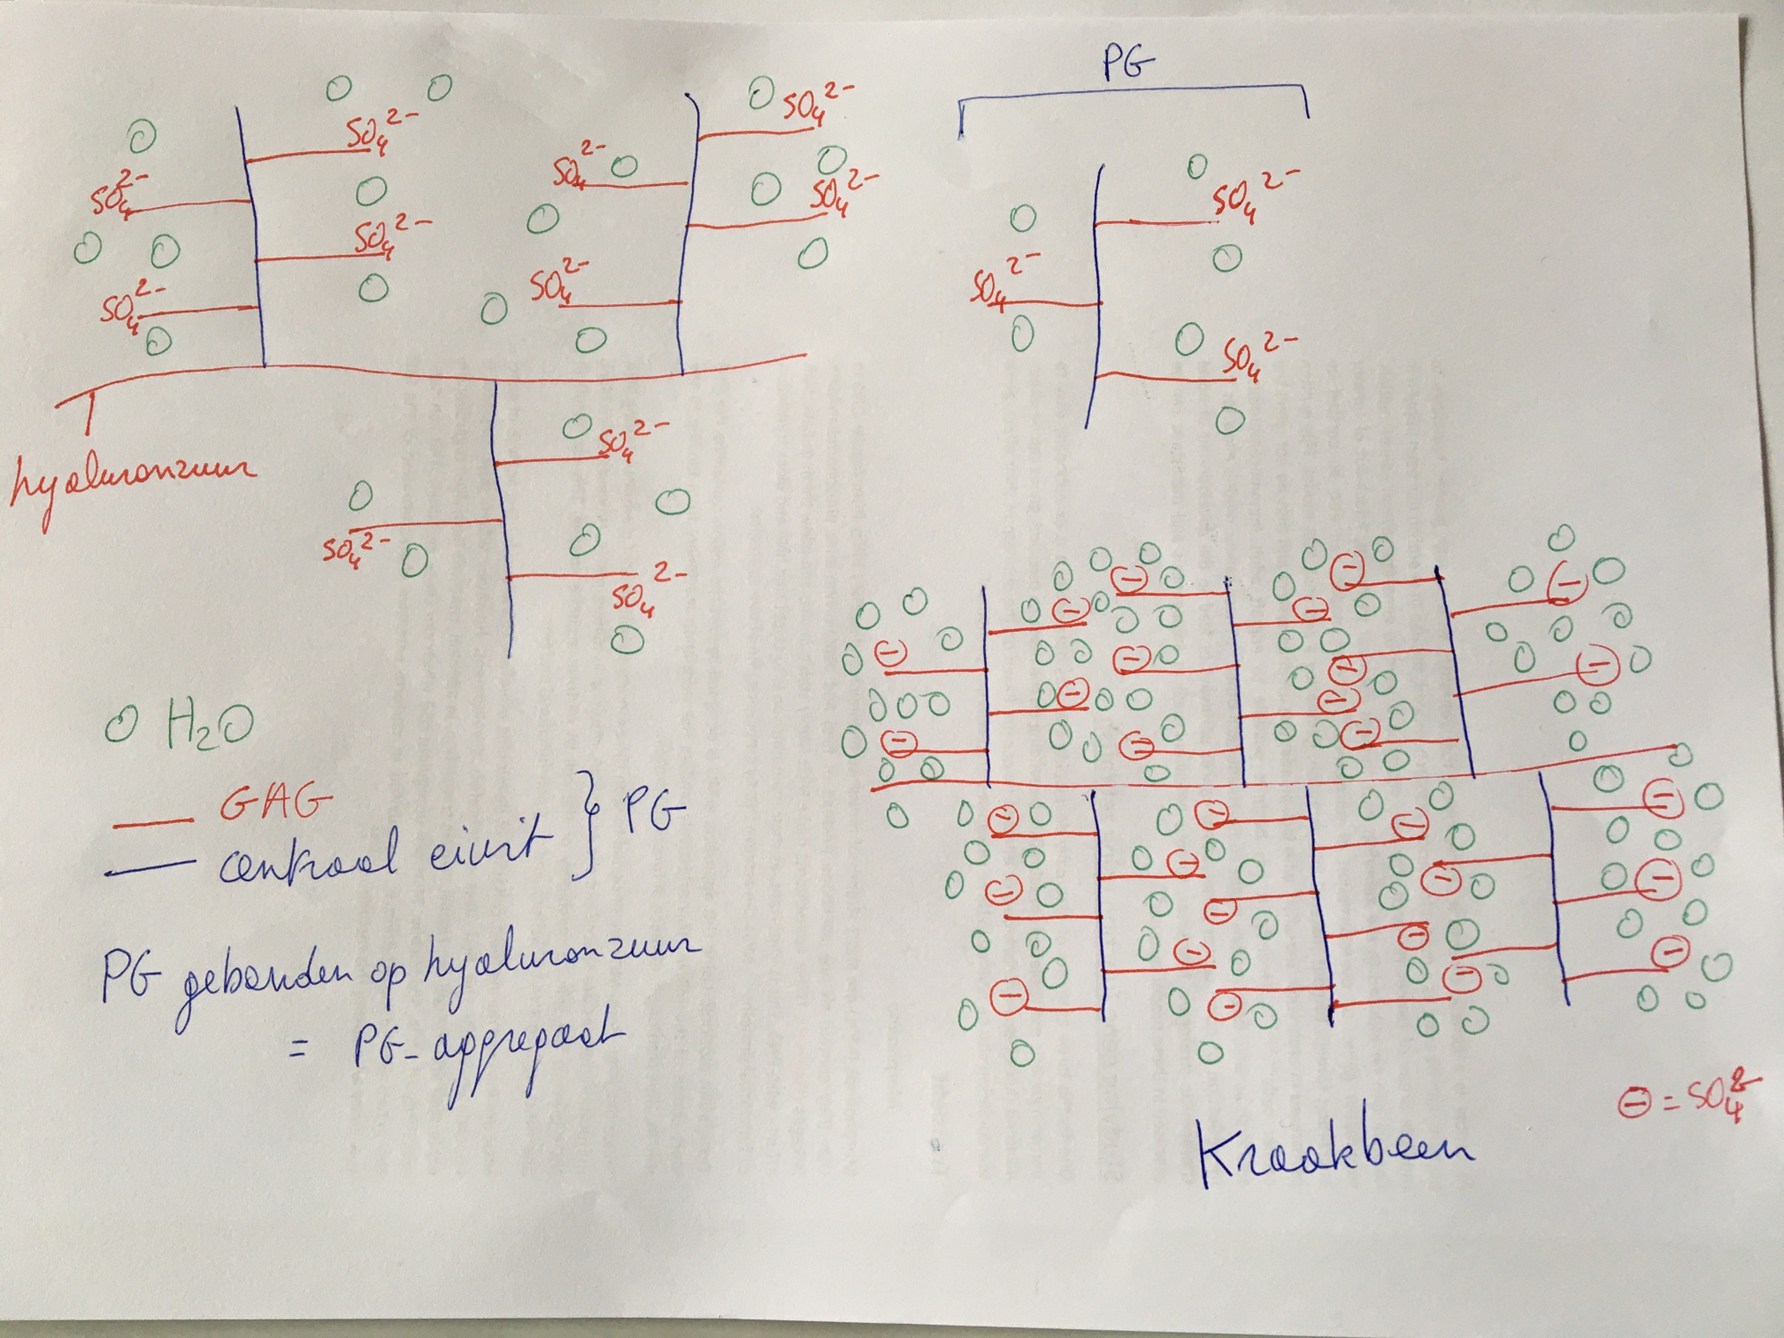 PG
SO₄²⁻
SO₄²⁻
SO₄²⁻
SO₄²⁻
SO₄²⁻
SO₄²⁻
SO₄²⁻
SO₄²⁻
SO₄²⁻
SO₄²⁻
SO₄²⁻
SO₄²⁻
hyaluronzuur
SO₄²⁻
SO₄²⁻
SO₄²⁻
O H₂O
— GAG
— centraal eiwit } PG
PG gebonden op hyaluronzuur
= PG-aggregaat
⊖ = SO₄²⁻
Kraakbeen